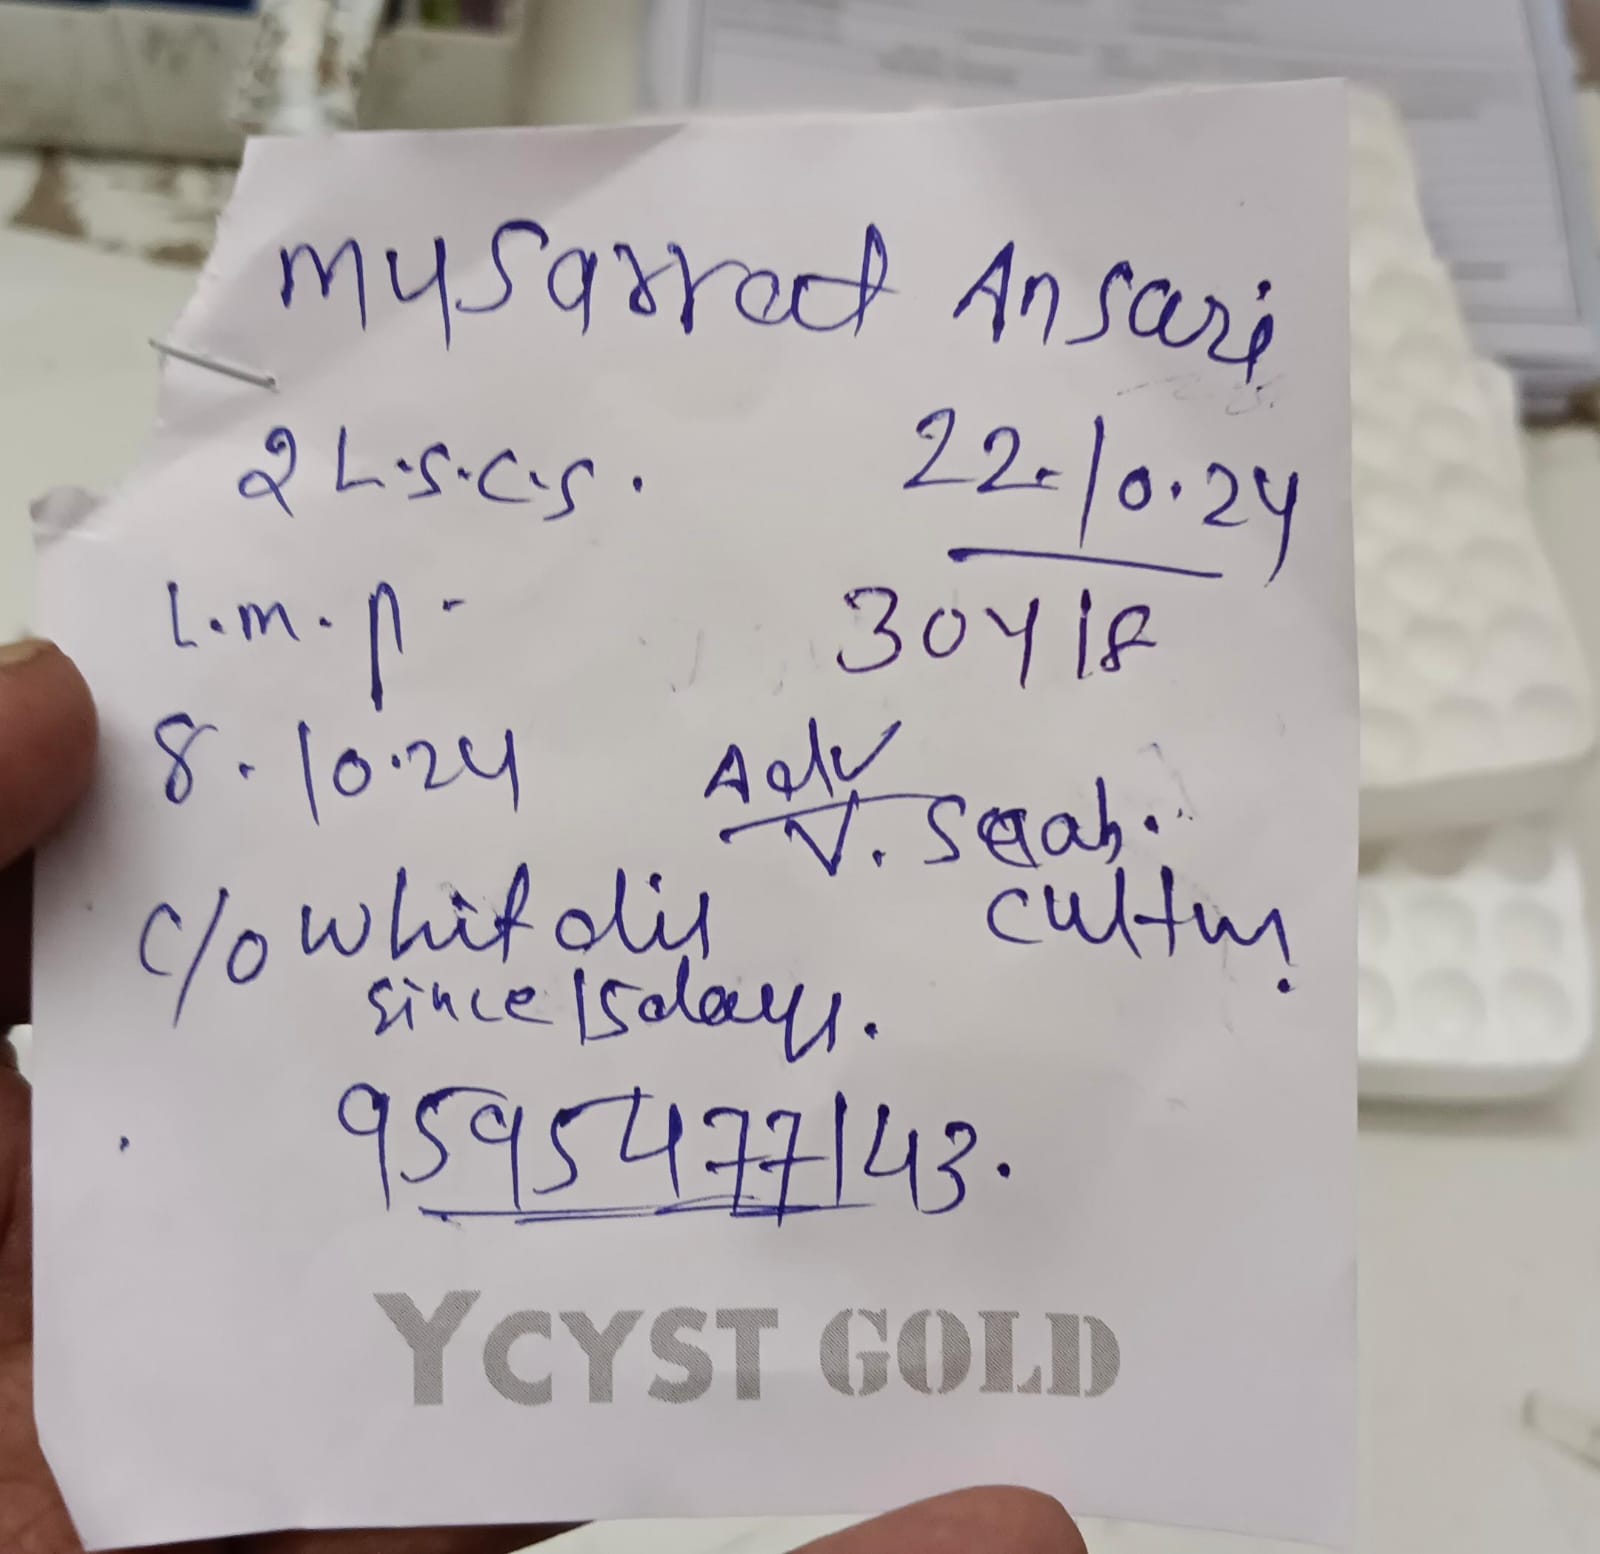 Mysarrat Ansari
2 L.S.C.S.
22.10.24
L.m.p -
30Y/F
8.10.24
Adv
V. Swab.
C/o whit dis
culture
since 15days.
9595477143.
YCYST GOLD